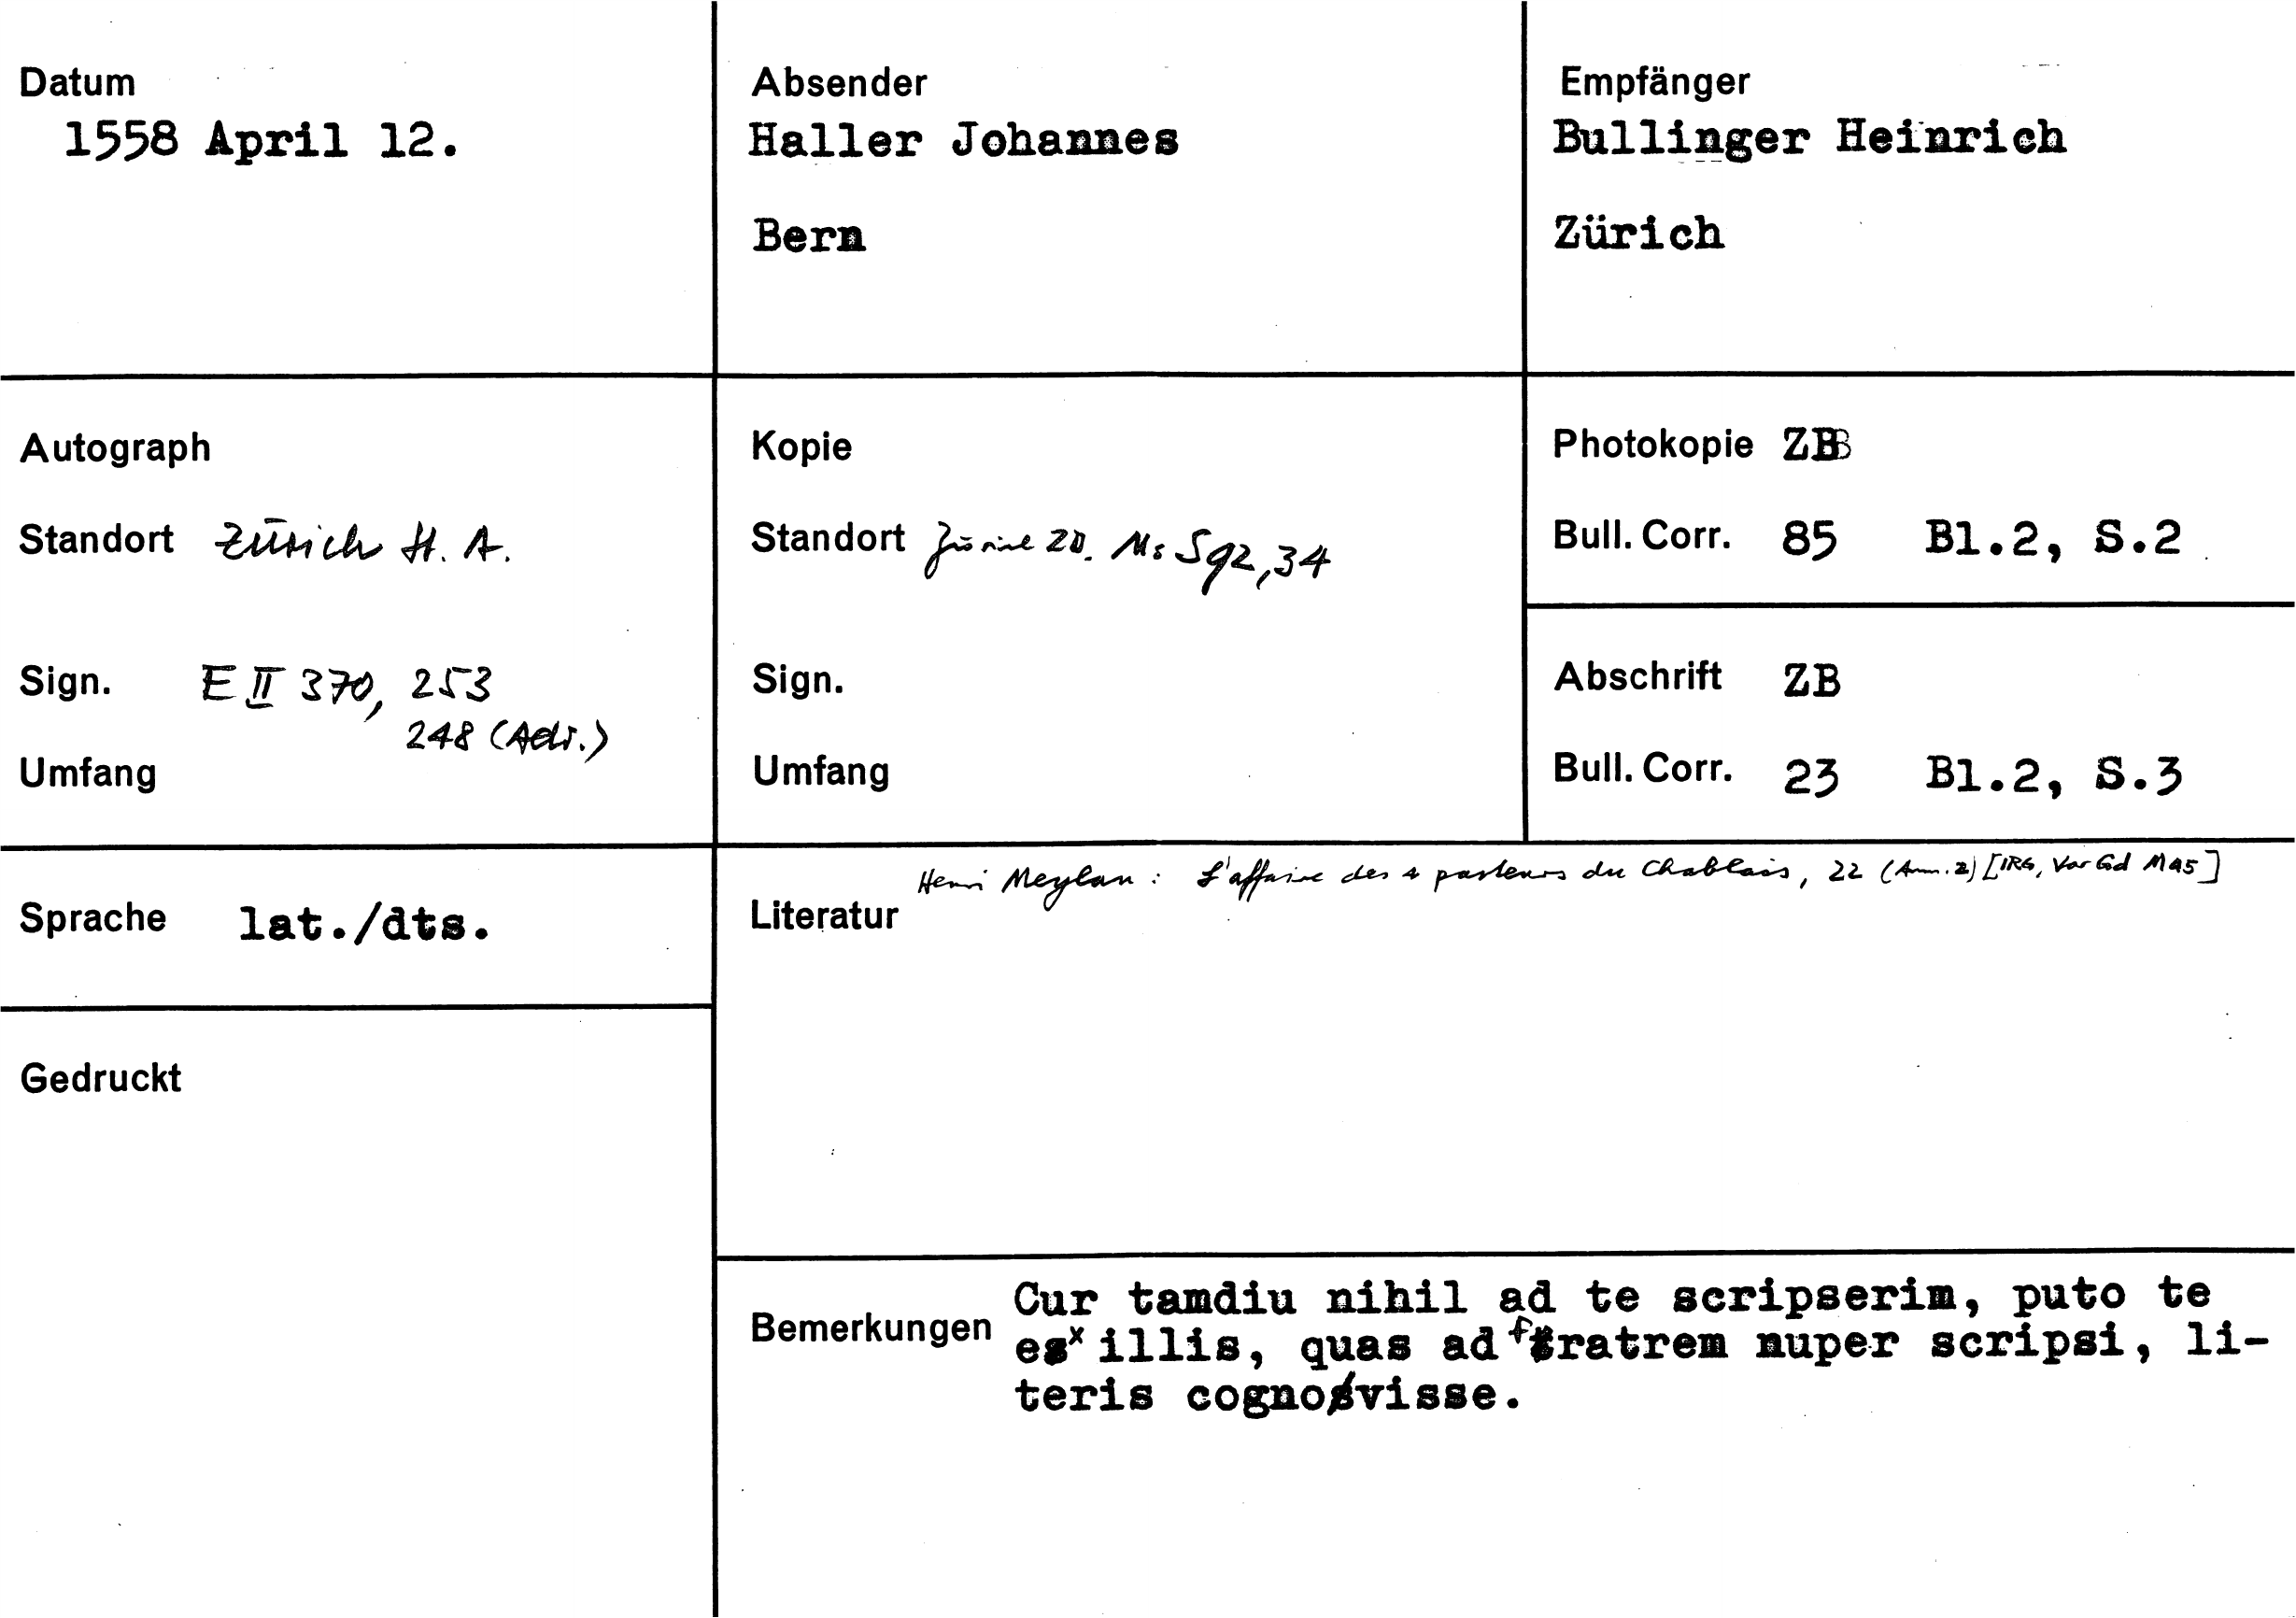 Datum
1558 April 12.
Absender
Haller Johannes
Bern
Empfänger
Bullinger Heinrich
Zürich
Autograph
Standort Zürich St. A.
Sign. E II 370, 253
248 (Adr.)
Umfang
Kopie
Standort Zürich ZB. Ms S 92, 34
Sign.
Umfang
Photokopie ZB
Bull. Corr. 85 Bl.2, S.2
Abschrift ZB
Bull. Corr. 23 Bl.2, S.3
Sprache lat./dts.
Gedruckt
Henri Meylan: L'affaire des 4 pasteurs du Chablais, 22 (Anm. 2) [IRG, Var Gd M 95]
Literatur
Bemerkungen
Cur tamdiu nihil ad te scripserim, puto te
ex illis, quas ad fratrem nuper scripsi, li-
teris cognovisse.